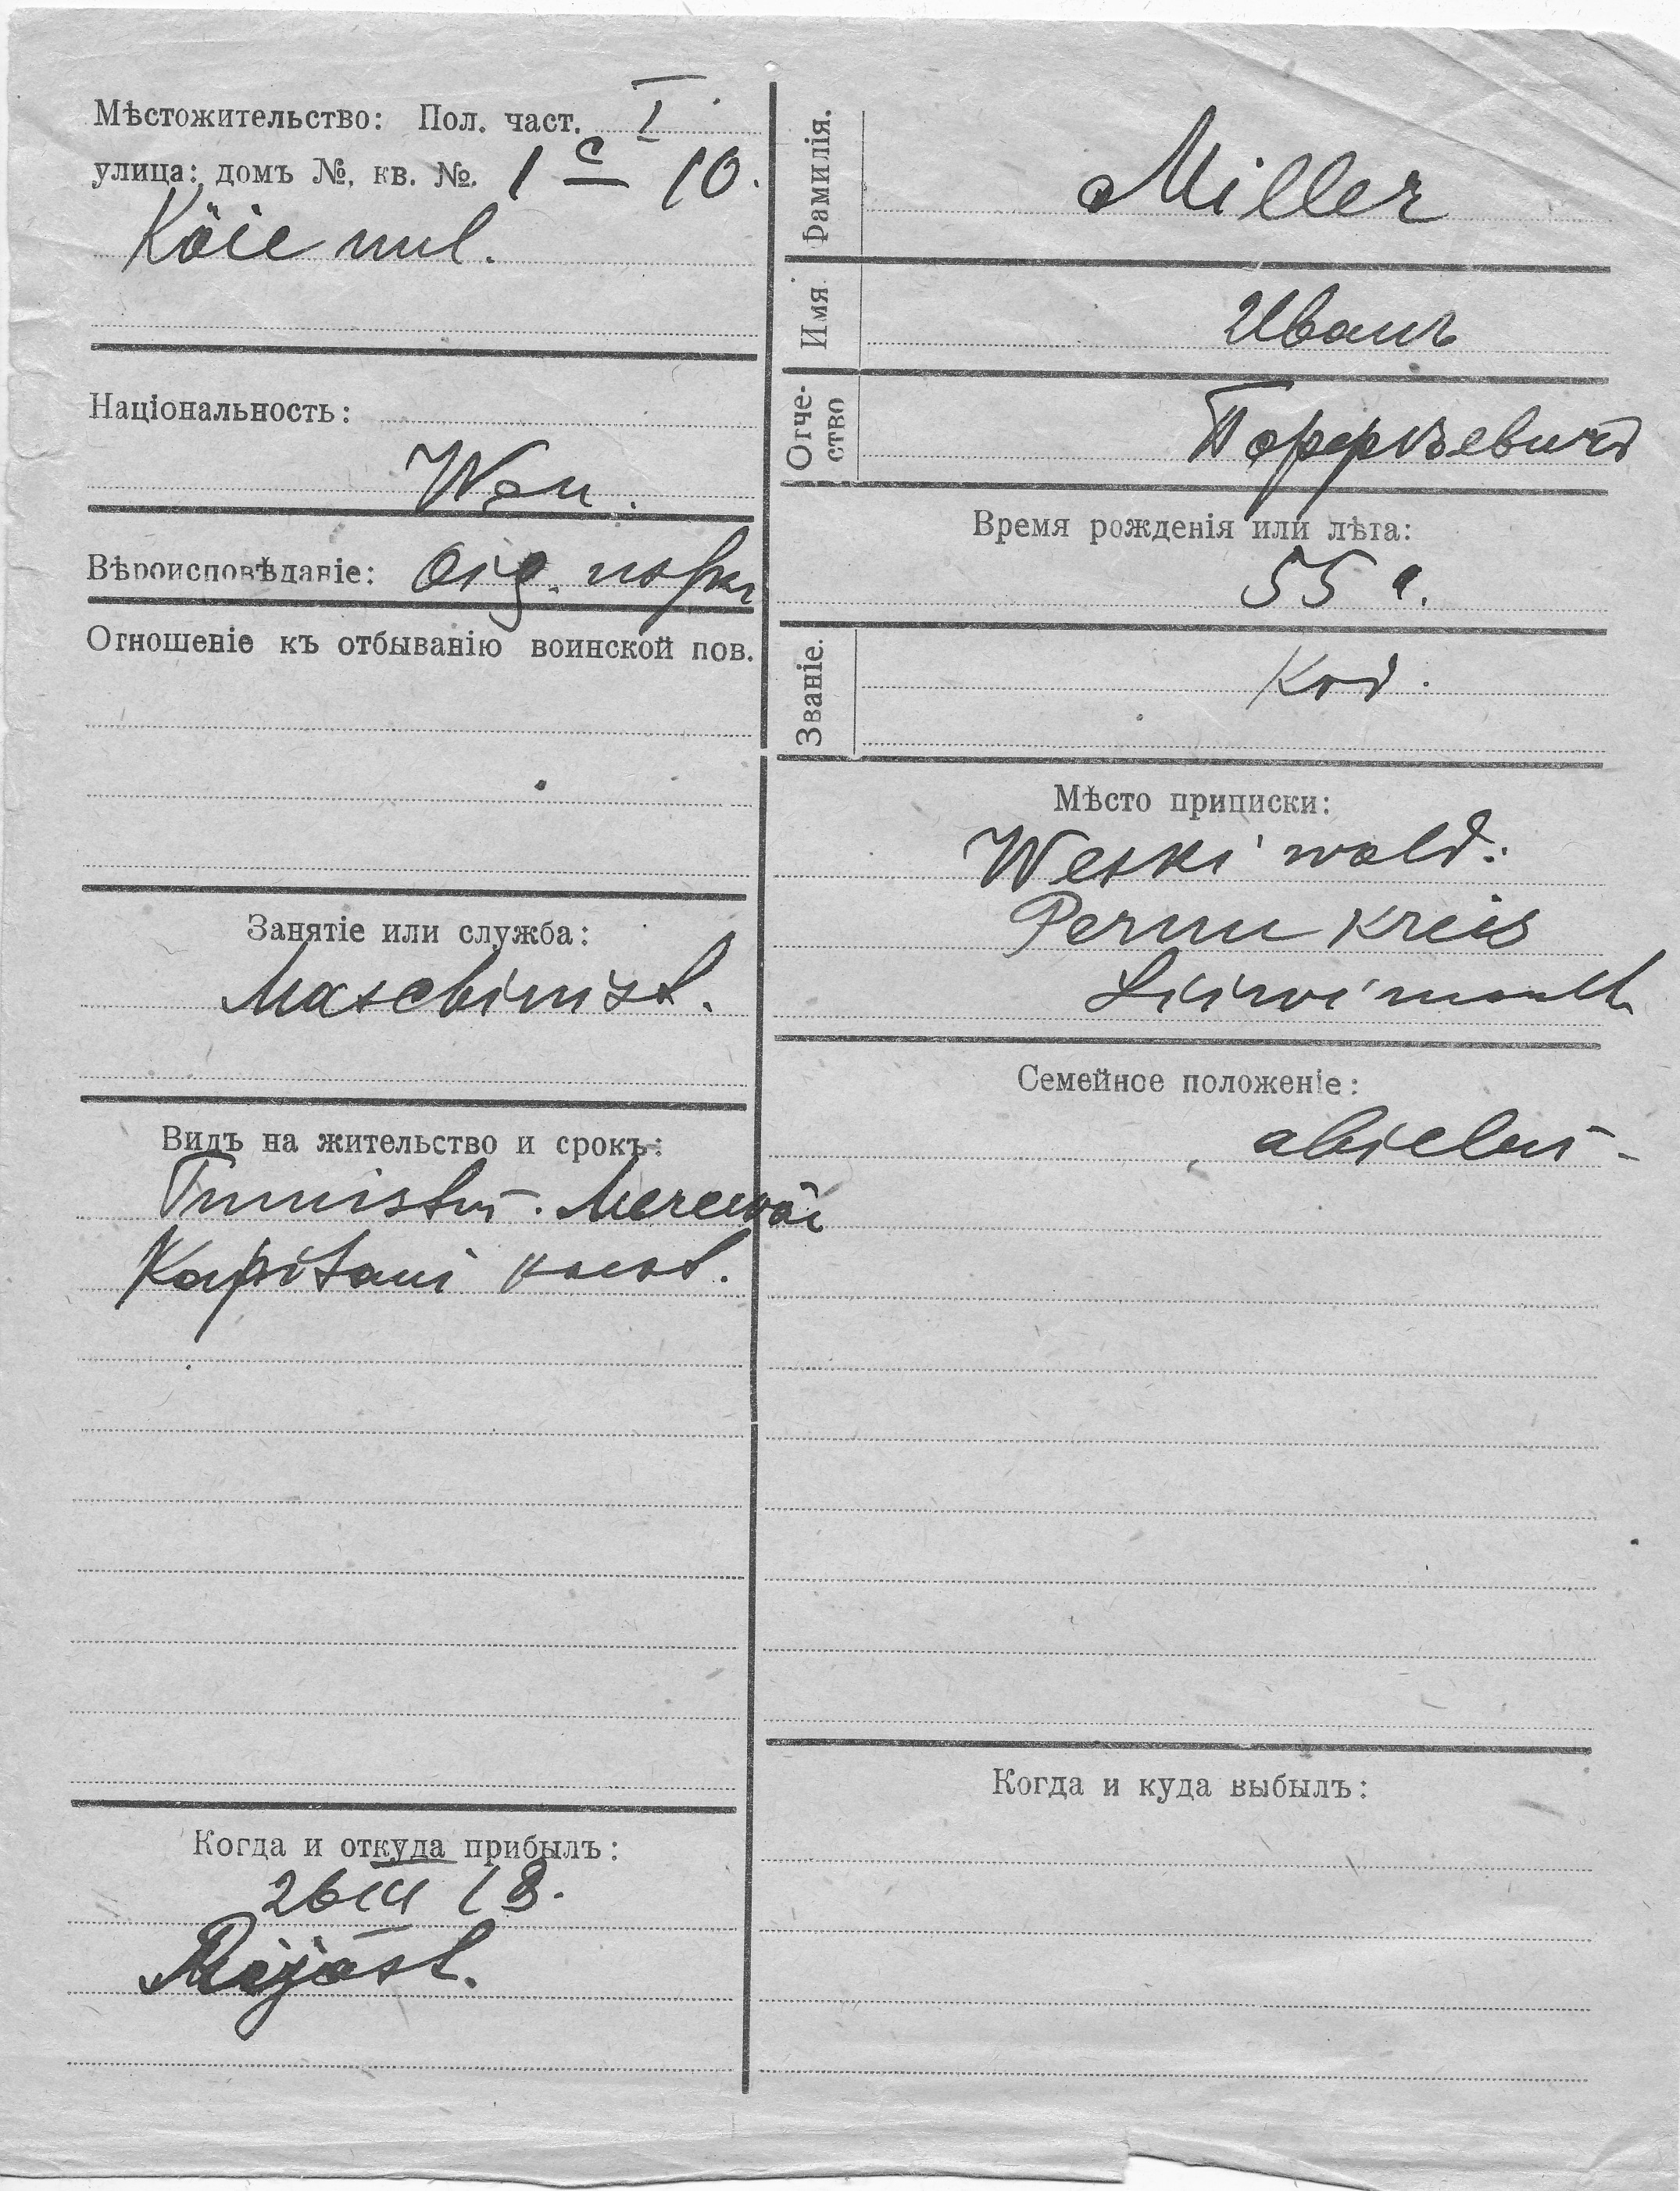 Мѣстожительство: Пол. част. I
улица: домъ №, кв. №. 1 c — 10.
Köie uul.
Національность:
Wen.
Вѣроисповѣданіе: Õig.
Отношеніе къ отбыванію воинской пов.
Занятіе или служба:
Maschinist.
Видъ на жительство и срокъ:
Tunnistus. Merewäe
Kapitani
Когда и откуда прибылъ:
26 III 18.
Riiast.
Фамилія.
Miller
Имя
Иванъ
Отче-
ство
Время рожденія или лѣта:
55 a.
Званіе.
Kod.
Мѣсто приписки:
Weski wald.
Pernu kreis
Liiwimaalt
Семейное положеніе:
abielus
Когда и куда выбылъ: